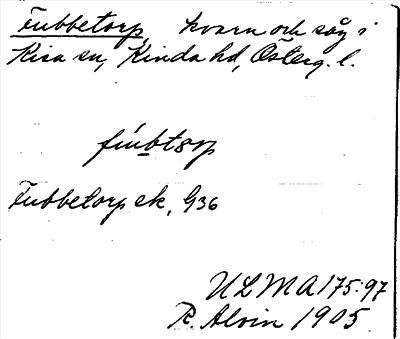 Fubbetorp, kvarn och såg i
Kisa sn, Kinda hd, Österg. l.
fúbtorp
Fubbetorp ek, G36
ULMA 175:97
R. Alvin 1905